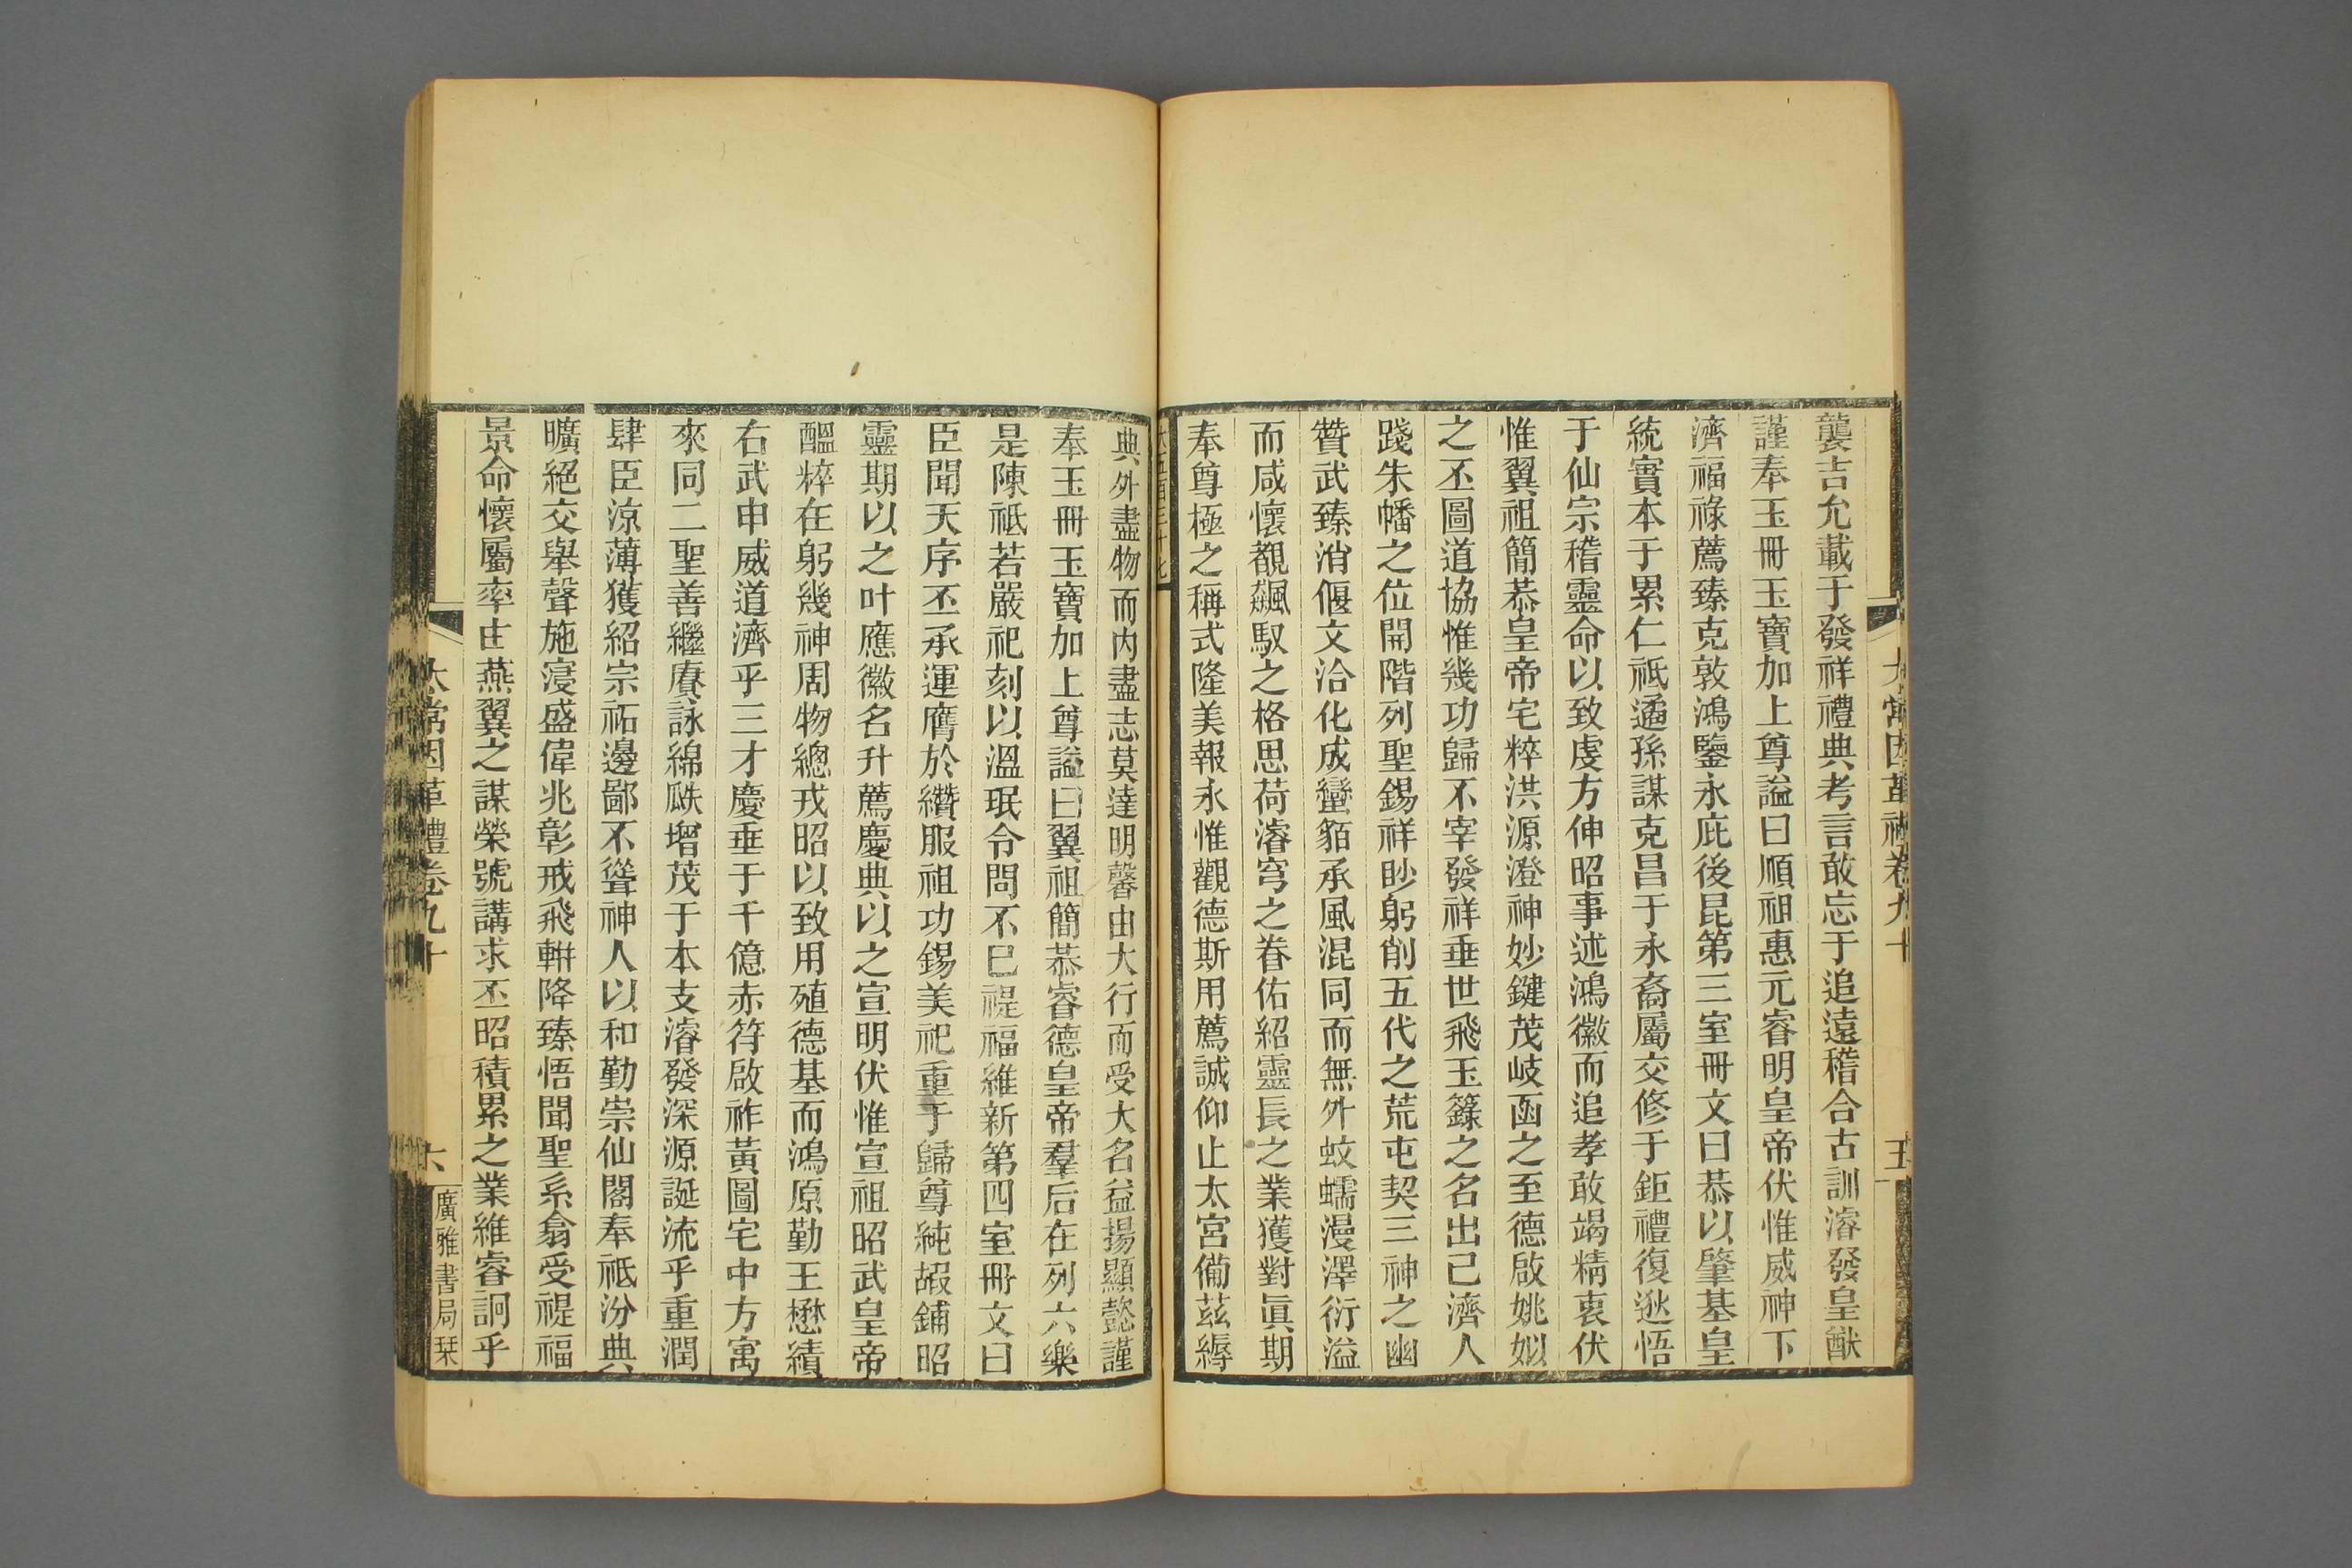 太常因革禮卷九十
五
襲吉允載于發祥禮典考言敢忘于追遠稽合古訓濬發皇猷
謹奉玉冊玉寶加上尊謚曰順祖惠元睿明皇帝伏惟威神下
濟福祿薦臻克敦鴻鑒永庇後昆第三室冊文曰恭以肇基皇
統實本于累仁祗遹孫謀克昌于永裔屬交修于鉅禮復逖悟
于仙宗稽靈命以致虔方伸昭事述鴻徽而追孝敢竭精衷伏
惟翼祖簡恭皇帝宅粹洪源澄神妙鍵茂岐函之至德啟姚姒
之丕圖道協惟幾功歸不宰發祥垂世飛玉籙之名出己濟人
踐朱幡之位開階列聖錫祥眇躬削五代之荒屯契三神之幽
贊武臻消偃文洽化成蠻貊承風混同而無外蚊蠕漫澤衍溢
而咸懷覩飆馭之格思荷濬穹之眷佑紹靈長之業獲對眞期
奉尊極之稱式隆美報永惟觀德斯用薦誠仰止太宮備茲縟
典外盡物而內盡志莫達明馨由大行而受大名益揚顯懿謹
奉玉冊玉寶加上尊謚曰翼祖簡恭睿德皇帝羣后在列六樂
是陳祗若嚴祀刻以溫珉令問不已禔福維新第四室冊文曰
臣聞天序丕承運膺於纘服祖功錫美祀重于歸尊純嘏鋪昭
靈期以之叶應徽名升薦慶典以之宣明伏惟宣祖昭武皇帝
醞粹在躬幾神周物總戎昭以致用殖德基而鴻原勤王懋績
右武申威道濟乎三才慶垂于千億赤符啟祚黃圖宅中方寓
來同二聖善繼賡詠綿瓞增茂于本支濬發深源誕流乎重潤
肆臣涼薄獲紹宗祏邊鄙不聳神人以和勤崇仙閣奉祗汾典
曠絕交舉聲施寖盛偉兆彰戒飛軿降臻悟聞聖系翕受禔福
景命懷屬率由燕翼之謀榮號講求丕昭積累之業維睿詗乎
太常因革禮卷九十
六
廣雅書局栞